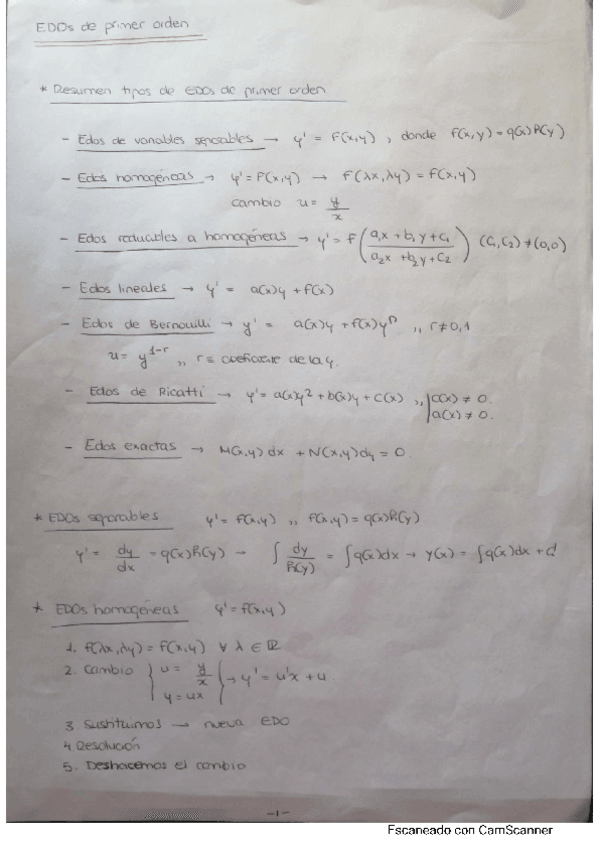 EDOs de primer orden
* Resumen tipos de EDOs de primer orden
- Edos de variables separables → y' = f(x,y) , donde f(x,y) = g(x)h(y)
- Edos homogéneas → y' = F(x,y) → f(λx,λy) = f(x,y)
cambio u = y/x
- Edos reducibles a homogéneas → y' = f((a₁x + b₁y + c₁)/(a₂x + b₂y + c₂)) (C₁,C₂) ≠ (0,0)
- Edos lineales → y' = a(x)y + f(x)
- Edos de Bernouilli → y' = a(x)y + f(x)yʳ ,, r ≠ 0,1
u = y¹⁻ʳ ,, r ≡ coeficiente de la y.
- Edos de Ricatti → y' = a(x)y² + b(x)y + c(x) ,, | c(x) ≠ 0.
a(x) ≠ 0.
- Edos exactas → M(x,y) dx + N(x,y)dy = 0
* EDOs separables y' = f(x,y) ,, f(x,y) = g(x)h(y)
y' = dy/dx = g(x)h(y) → ∫ dy/h(y) = ∫g(x)dx → y(x) = ∫g(x)dx + C
* EDOs homogéneas y' = f(x,y)
1. f(λx,λy) = f(x,y) ∀ λ ∈ ℝ
2. Cambio { u = y/x
y = ux } → y' = u'x + u.
3 Sustituimos → nueva EDO
4 Resolución
5. Deshacemos el cambio
-1-
Escaneado con CamScanner